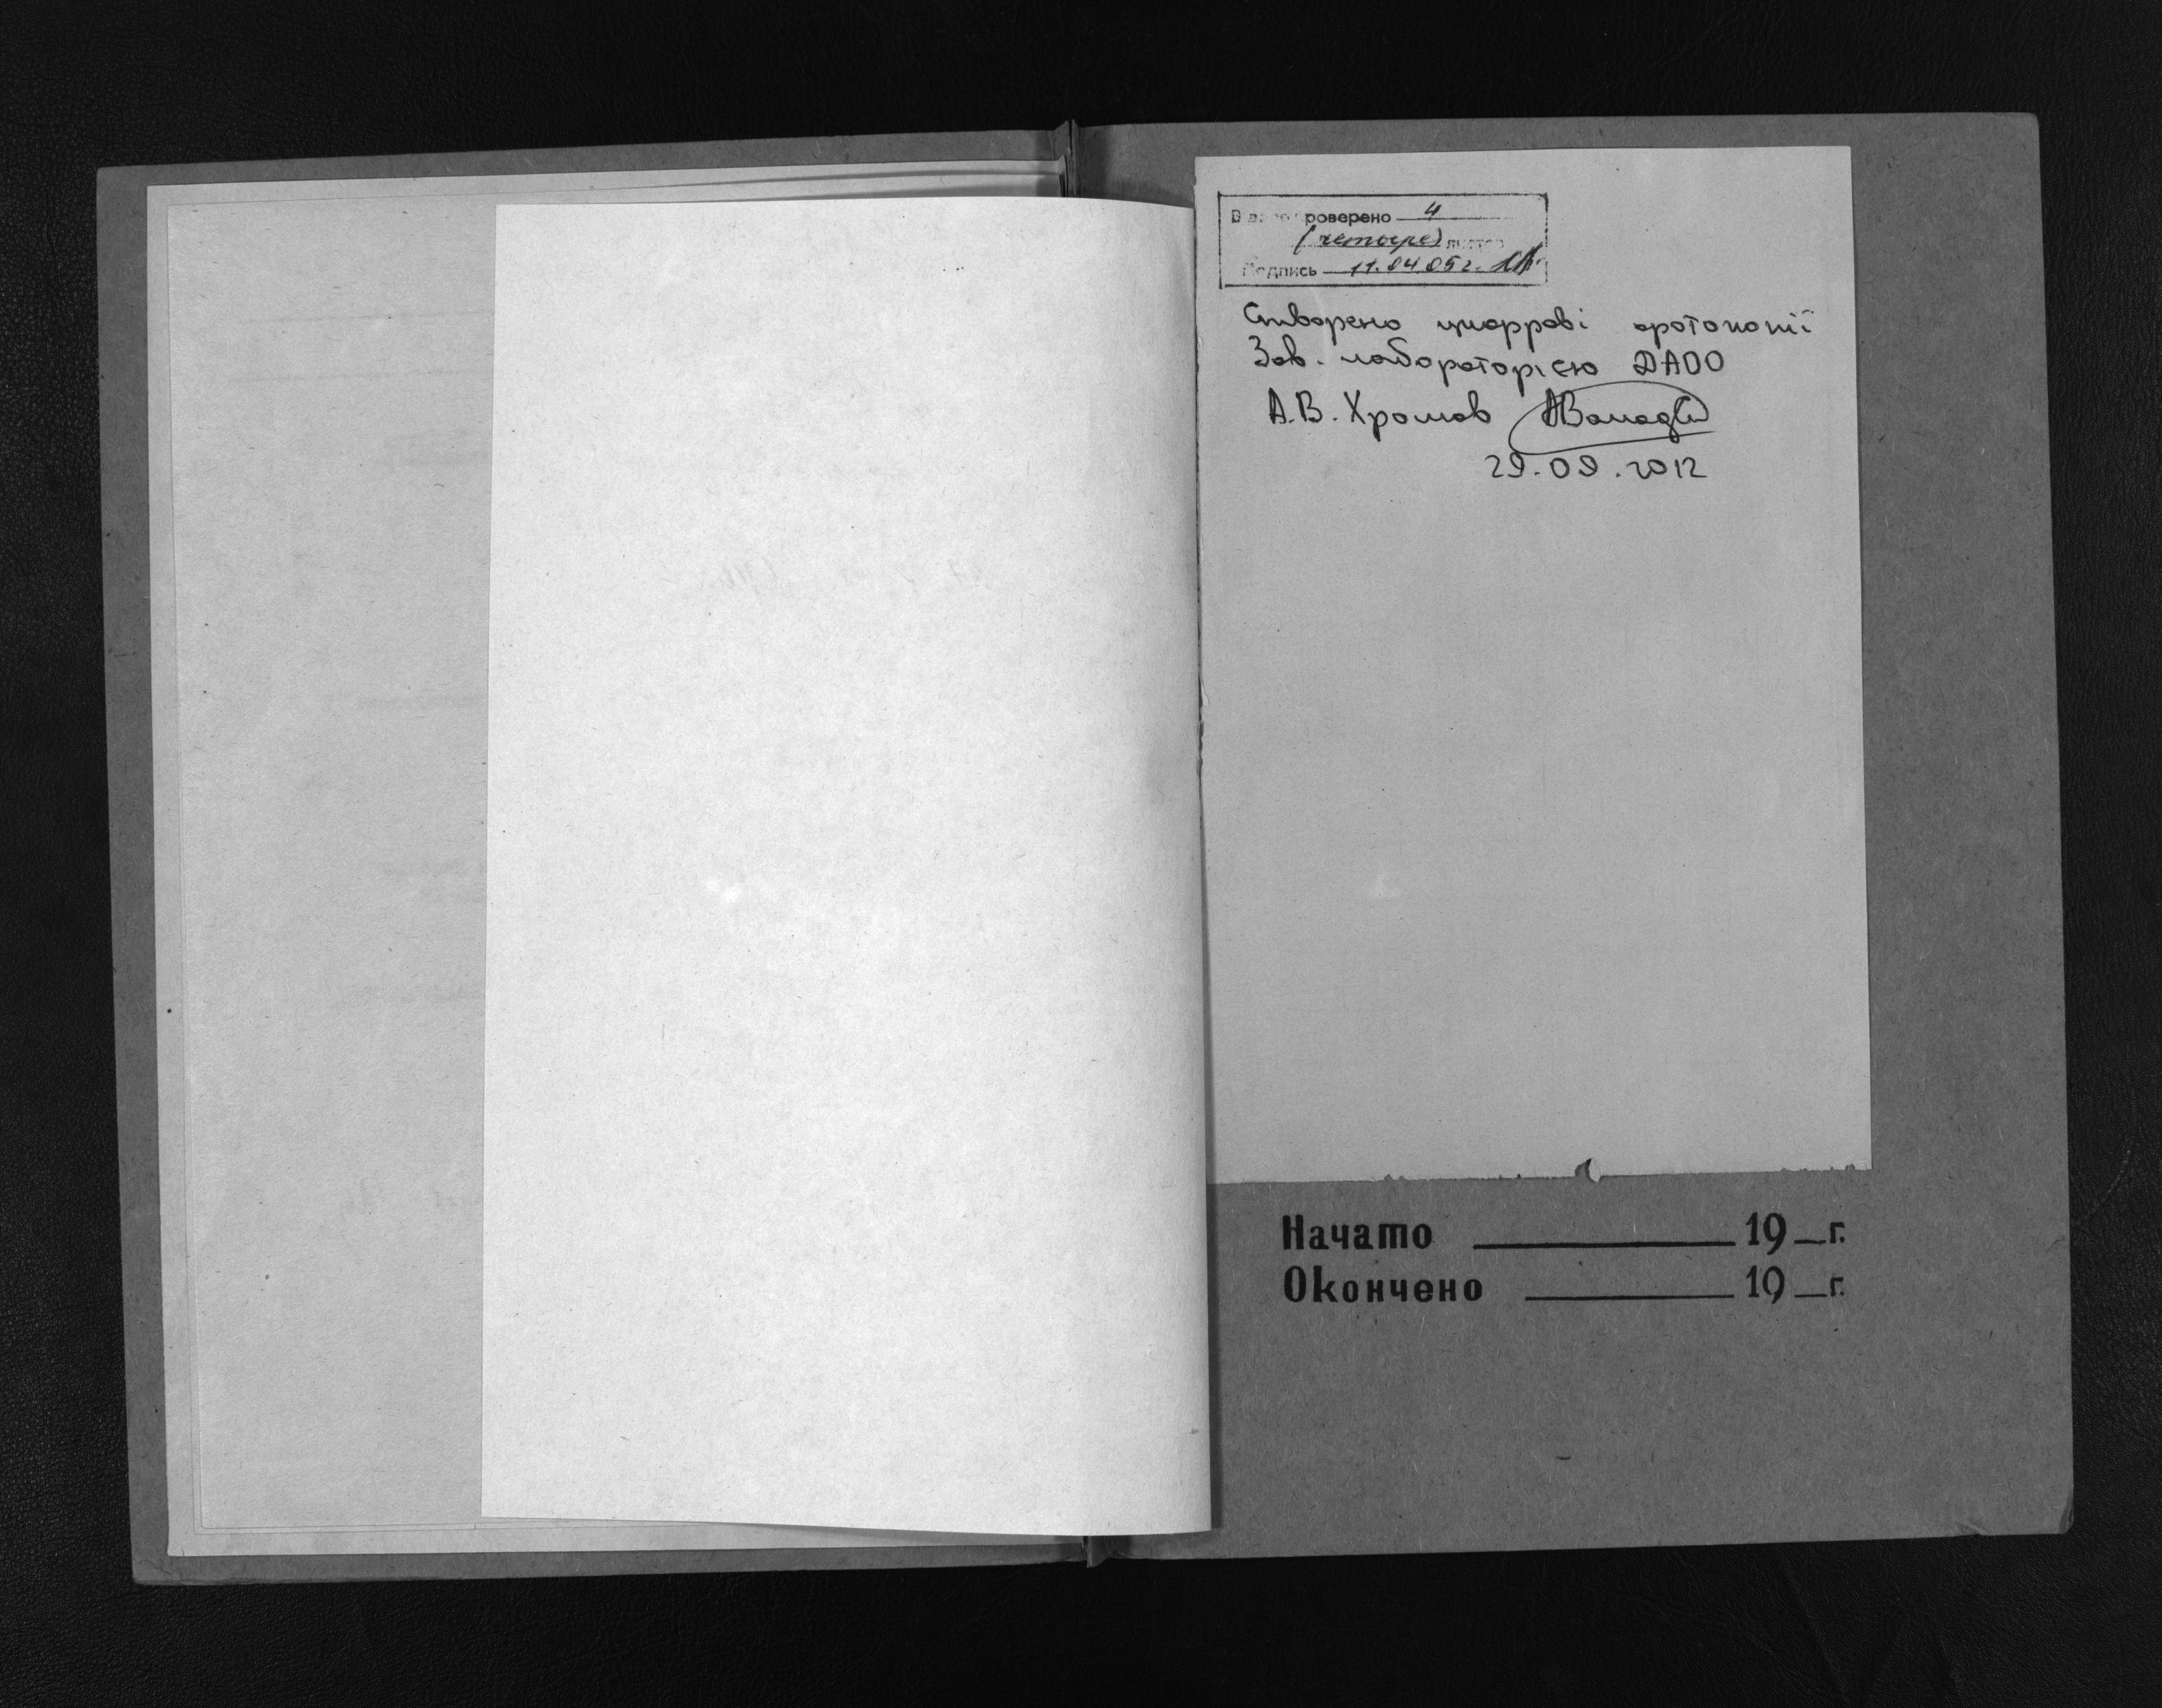 В деле проверено 4
(четыре) листов
Подпись 11.04.05г.
Створено цифрові фотокопії
Зав. лабораторією ДАОО
А.В. Хромов
29.09.2012
Начато 19 г.
Окончено 19 г.